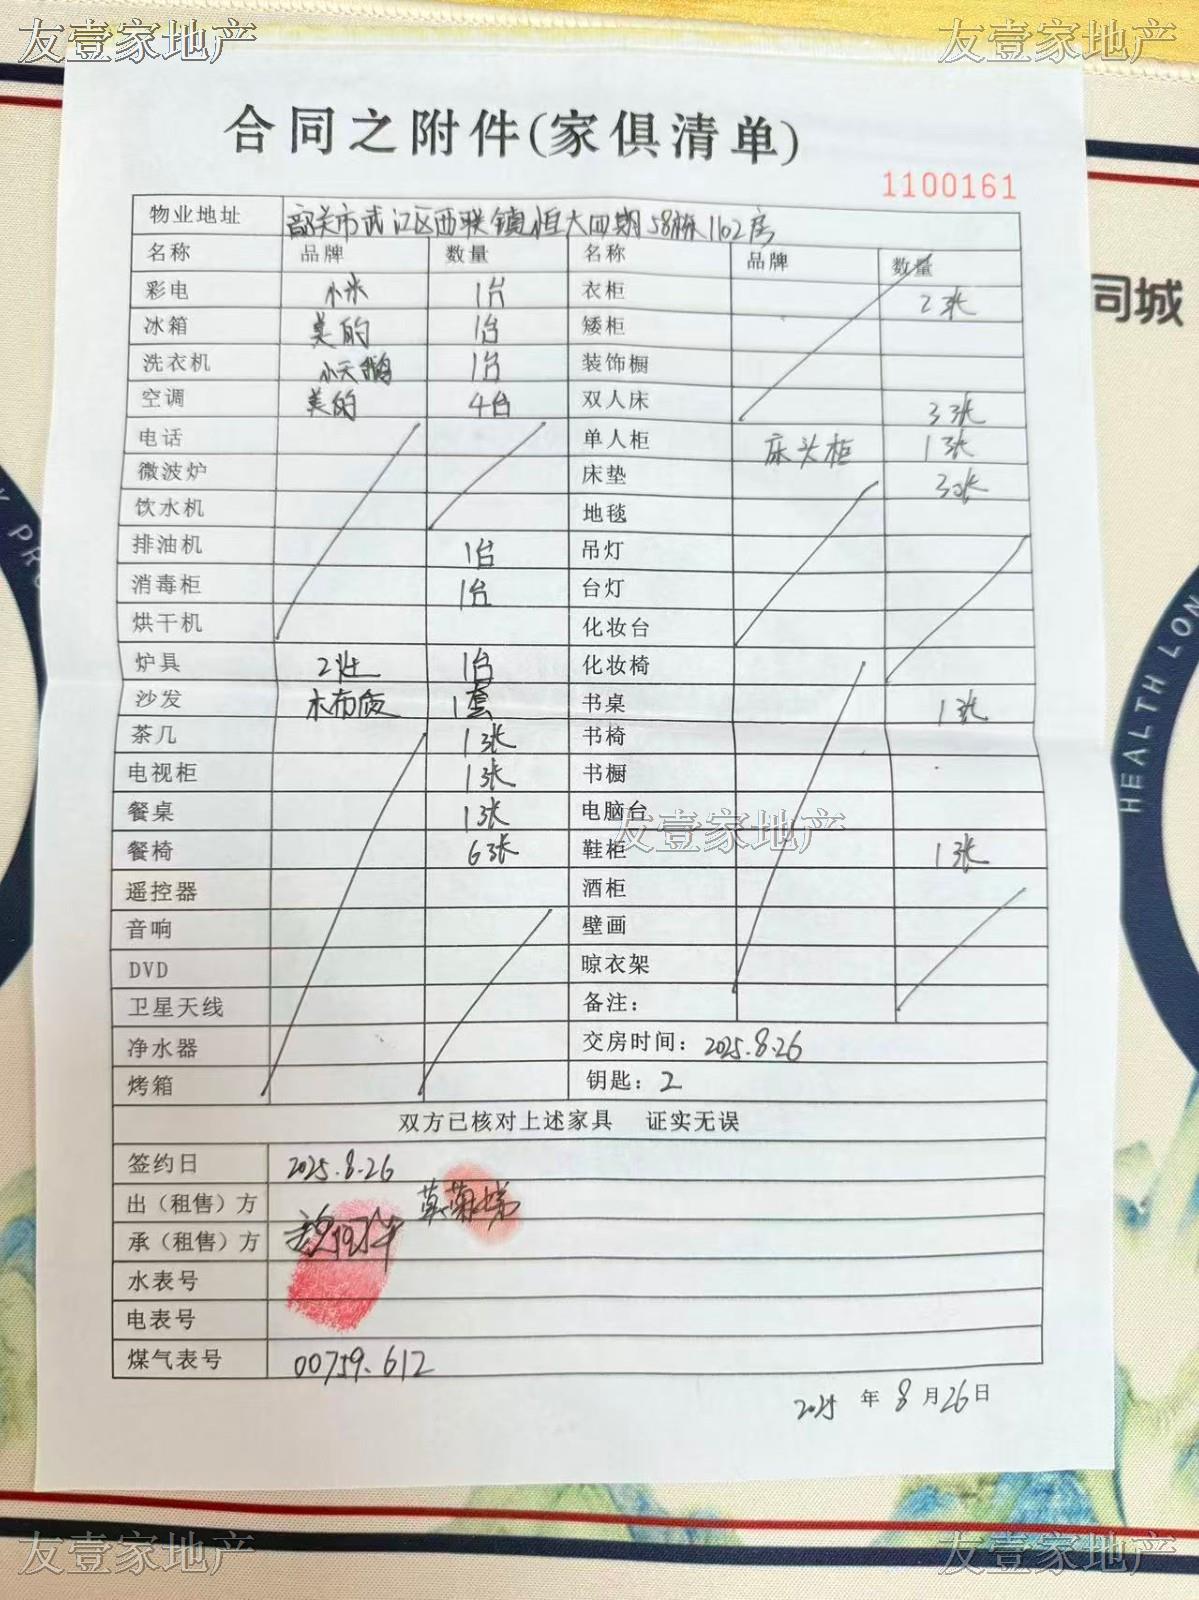 友壹家地产 友壹家地产
合同之附件(家俱清单)
1100161
物业地址 韶关市武江区西联镇恒大四期58栋1102房
名称 品牌 数量 名称 品牌 数量
彩电 小米 1台 衣柜 2张
冰箱 美的 1台 矮柜
洗衣机 小天鹅 1台 装饰橱
空调 美的 4台 双人床 3张
电话 单人柜 床头柜 1张
微波炉 床垫 3张
饮水机 地毯
排油机 1台 吊灯
消毒柜 1台 台灯
烘干机 化妆台
炉具 2灶 1台 化妆椅
沙发 木布质 1套 书桌 1张
茶几 1张 书椅
电视柜 1张 书橱
餐桌 1张 电脑台
友壹家地产
餐椅 6张 鞋柜 1张
遥控器 酒柜
音响 壁画
DVD 晾衣架
卫星天线 备注：
净水器 交房时间：2025.8.26
烤箱 钥匙：2
双方已核对上述家具 证实无误
签约日 2025.8.26
出（租售）方
承（租售）方
水表号
电表号
煤气表号 00759.612
2025 年 8 月 26 日
同城
HEALTH LON
友壹家地产 友壹家地产